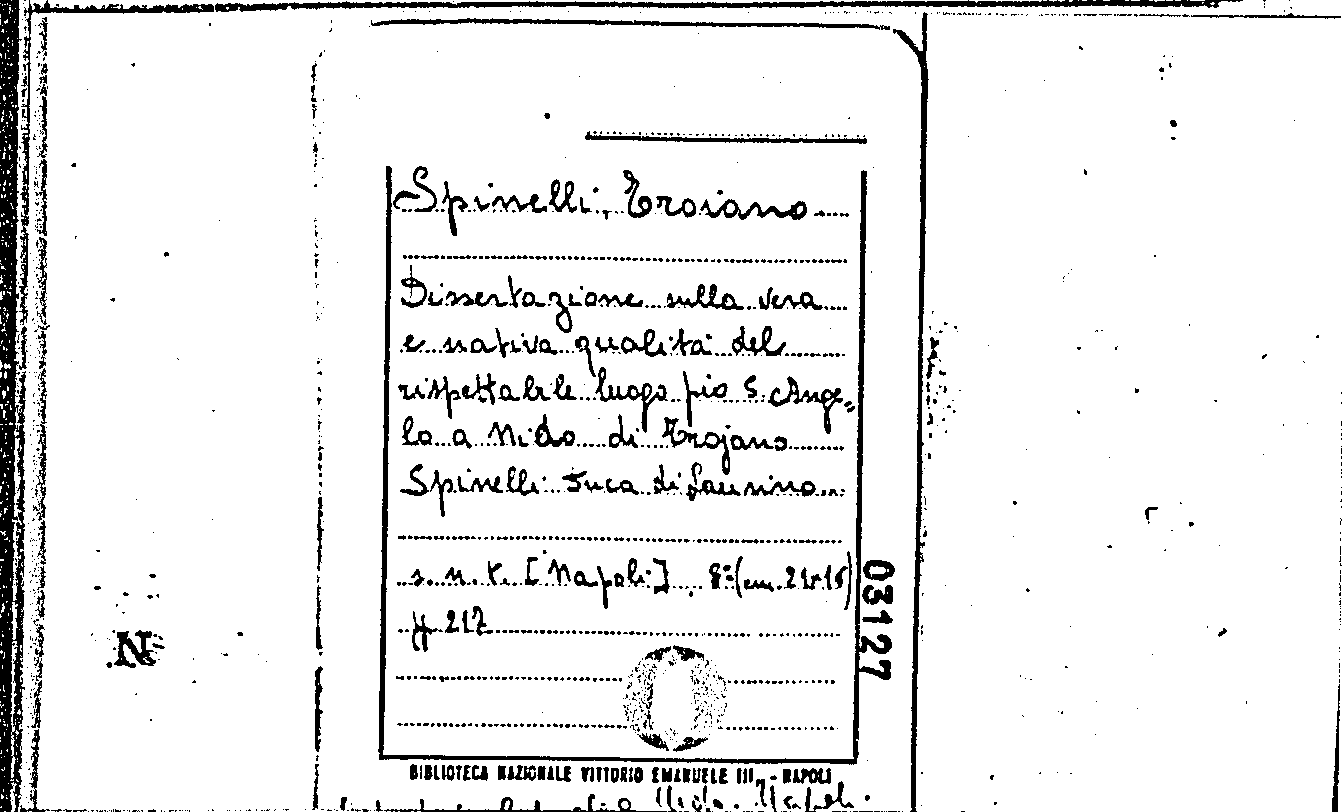 Spinelli, Troiano
Dissertazione sulla vera
e nativa qualità del
rispettabile luogo pio S. Ange„
lo a Nido di Trojano
Spinelli Duca di Laurino
s. n. t. [Napoli], 8° (cm. 21x15)
pp 217
03127
N
BIBLIOTECA NAZIONALE VITTORIO EMANUELE III - NAPOLI